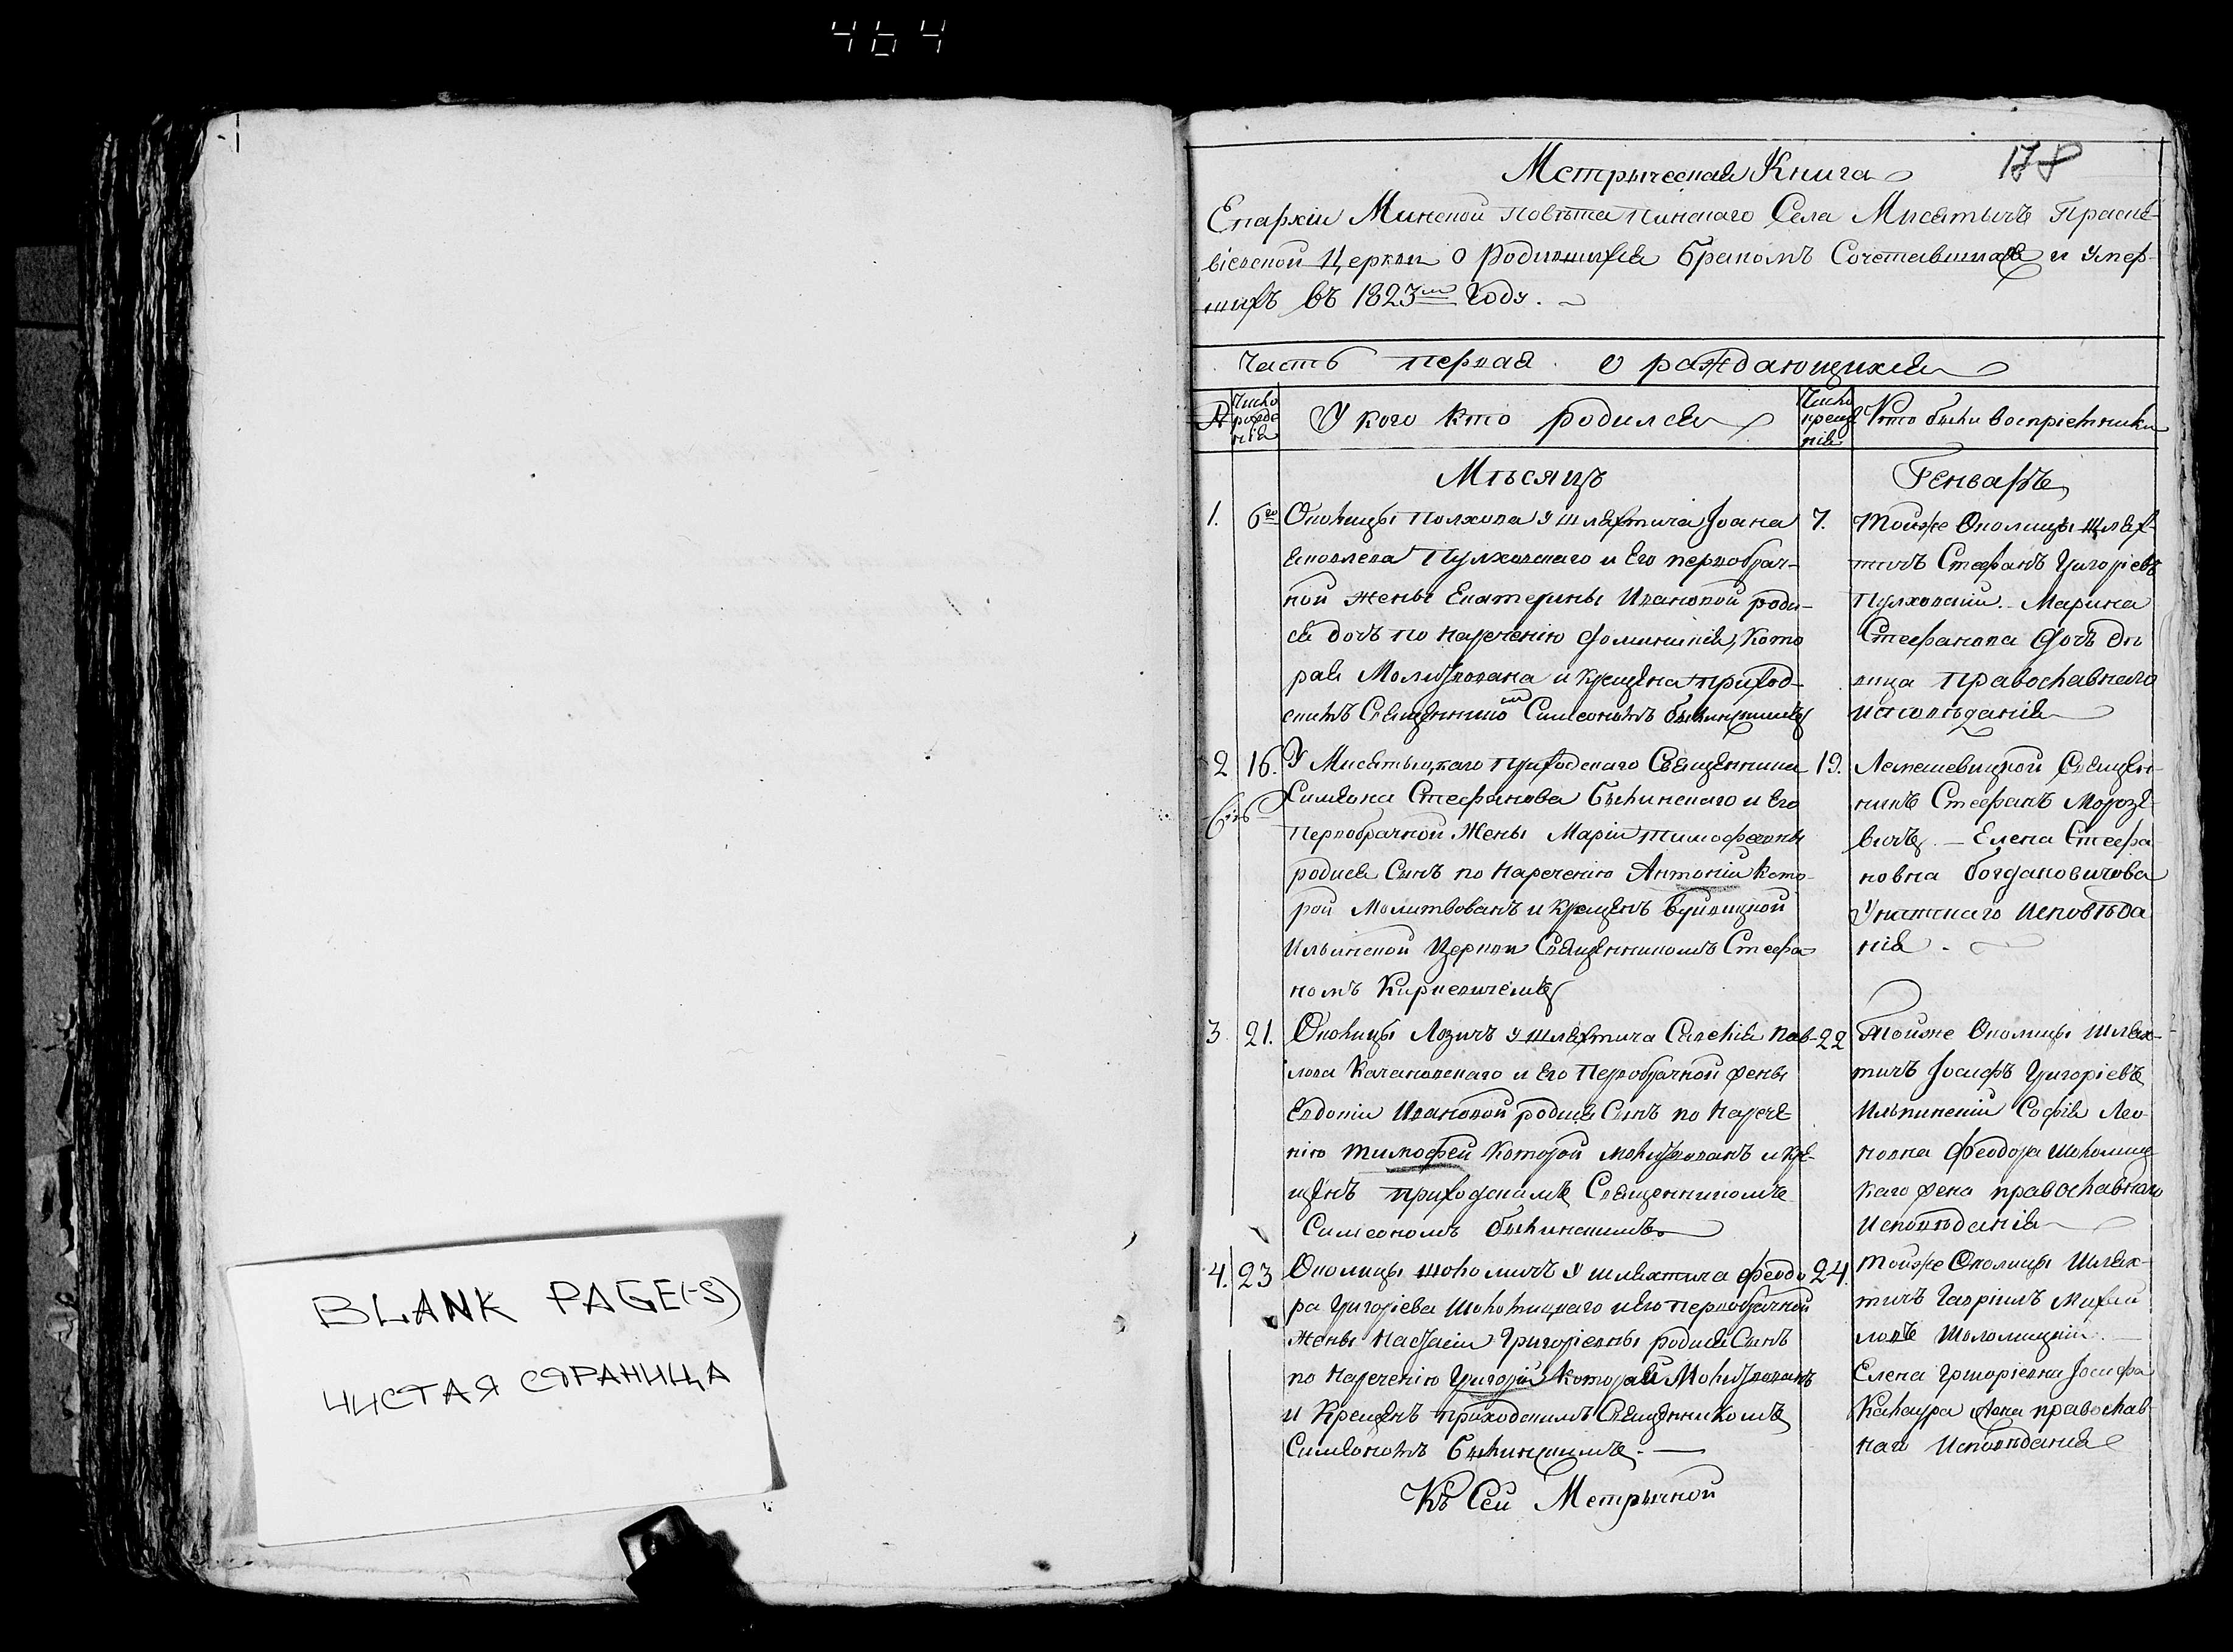 464
BLANK PAGE(-S)
ЧИСТАЯ СТРАНИЦА
Метрическая Книга
178
Епархіи Минской повѣта пинскаго Села Мисятичъ Праске-
віевской Церкви о родившихся бракомъ Сочетавшихся и умер-
шихъ въ 1823м Году.
Часть первая о раждающихся
№ Число рожде нія
У кого кто родился
Число крещ нія
Кто были воспріемники
Мѣсяцъ
Генварь
1. 6го Околицы Полхова у шляхтича Іоана
Яковлева Пулховскаго и Его первобрач-
ной жены Екатерины Ивановой роди-
ся дочь по наречению Фоминикія, Кото
рая Молитвована и крещена приход-
скимъ Священникомъ Симеономъ былинскимъ
7. тойже Околицы шлях-
тичъ Стефанъ Григоріевъ
Пулховскій. Марина
Стефанова дочь дѣ
вица Православнаго
исповѣданія
2 16. У Мисятыцкаго приходскаго Священника
Симеона Стефанова былинскаго и Его
первобрачной Жены Маріи тимофеевны
родися Сынъ по наречению Антоній кото-
рой Молитвованъ и крещенъ
Ильинской Церкви Священникомъ Стефа-
номъ
19. Лемешевицкой Священ-
никъ Стефанъ Морозе-
вичъ. — Елена Стефа
новна богдановичова
Униатскаго Исповѣда
нія.
3 21. Околицы Лозичъ у шляхтича Савелія Пав-
лова Качановскаго и Его Первобрачной жены
Евдокіи Ивановой родися Сынъ по нарече
нію тимофей которой молитвованъ и кре-
щенъ приходскимъ Священникомъ
Симеономъ былинскимъ
22 тойже Околицы шлях-
тичъ Іосифъ Григоріевъ
Софія Лео-
новна Феодора Шоломиц
каго жена православнаго
Исповѣданія
4. 23 Околицы шоломичъ у шляхтича Феодо
ра Григоріева Шоломицкаго и Его первобрачной
жены Настасіи Григоріевны родися Сынъ
по наречению Григорій которай Молитвованъ
и Крещенъ приходскимъ Священникомъ
Симеономъ былинскимъ. —
24. тойже Околицы Шлях-
тичъ Гавріилъ Михаи
ловъ Шоломицкій.
Елена Григоріевна Іосифа
жена православ-
наго Исповѣданія
Къ Сей Метрычной